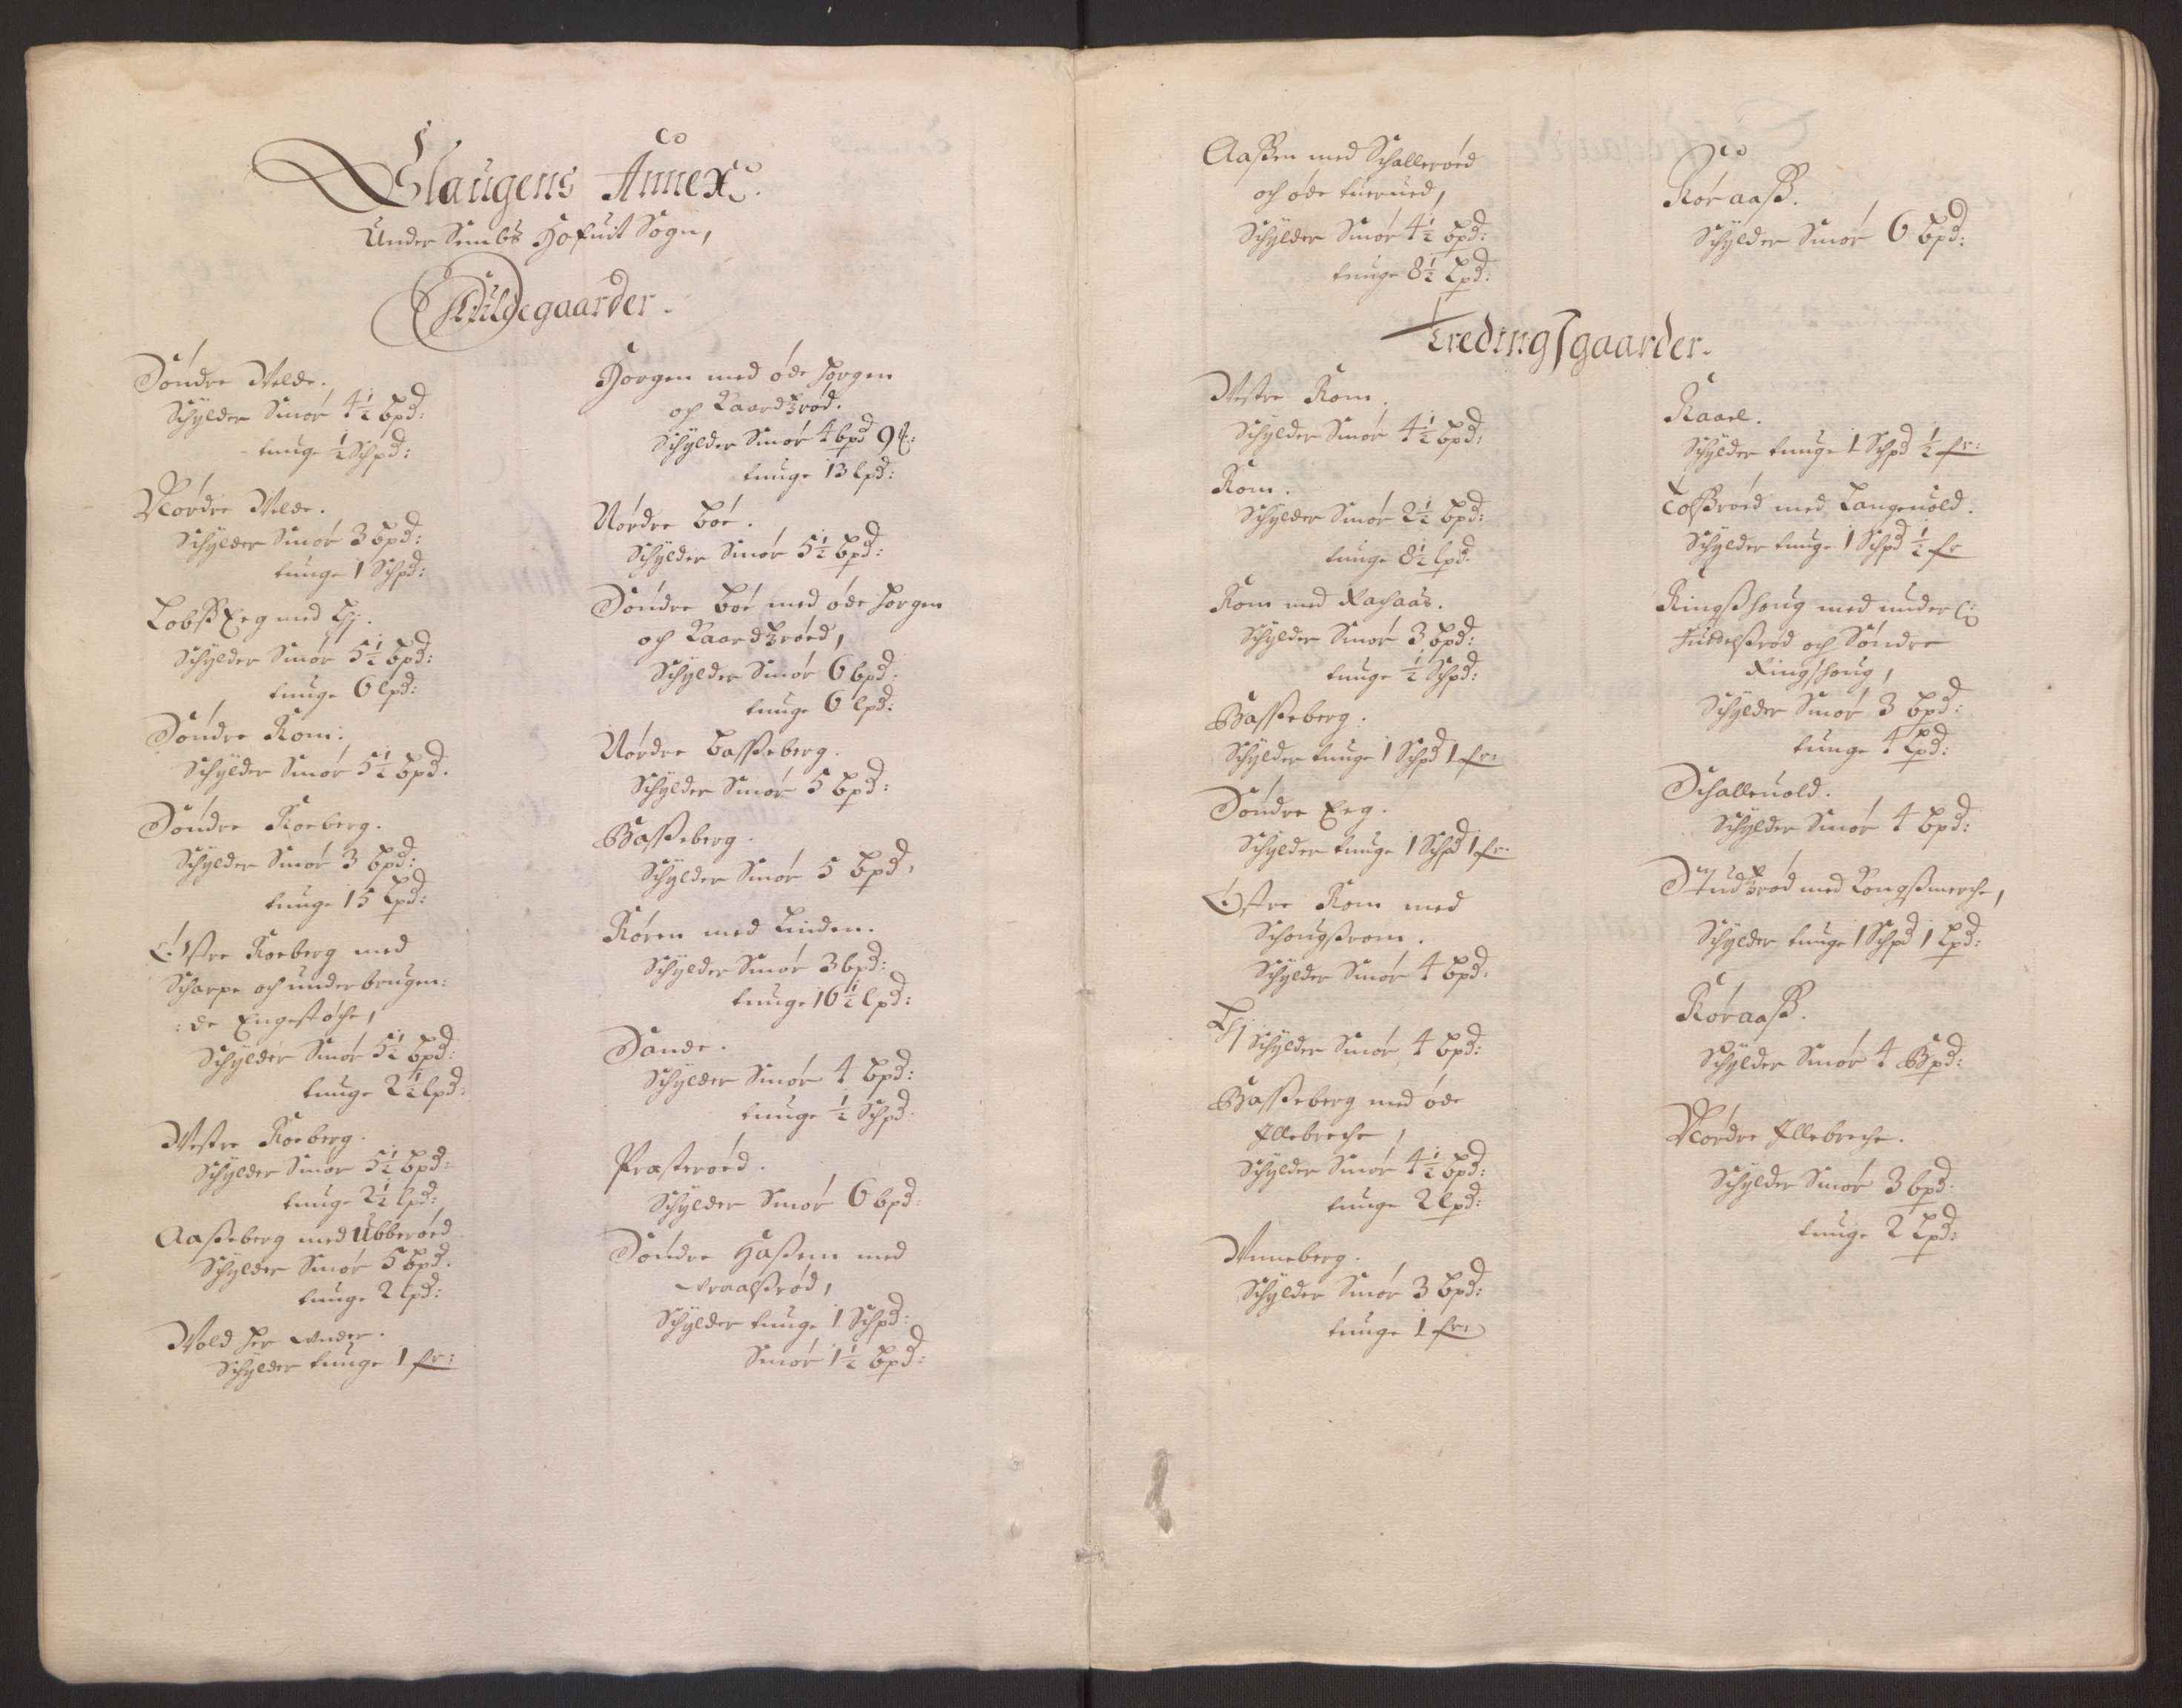 Slaugens Annex.
Under Sembs Hofuit Sogn,
Fuldegaarder.
Søndre Velde.
Schylder Smør 4½ bpd:
tunge ½ Schpd:
Nordre Velde.
Schylder Smør 3 bpd:
tunge 1 Schpd:
Lobß Eeg med
Schylder Smør 5½ bpd:
tunge 6 lpd:
Søndre Rom:
Schylder Smør 5½ bpd.
Søndre Roeberg.
Schylder Smør 3 bpd:
tunge 15 Lpd:
Østre Roeberg med
Scharpe och underbrugen:
:de Engestøche,
Schylder Smør 5½ bpd:
tunge 2½ lpd:
Westre Roeberg.
Schylder Smør 5½ bpd:
tunge 2½ lpd:
Aaßeberg med Ubberøed
Schylder Smør 5 bpd.
tunge 2 lpd:
Wold her under.
Schylder tunge 1 fr:
Horgen med øde horgen
och Raardtzrød.
Schylder Smør 4 bpd 9
tunge 13 lpd:
Nordre Bøe.
Schylder Smør 5½ bpd:
Søndre Bøe med øde horgen
och Raardtzrøed,
Schylder Smør 6 bpd:
tunge 6 lpd:
Nordre Basseberg.
Schylder Smør 5 bpd:
Basseberg.
Schylder Smør 5 bpd,
Røren med Linden.
Schylder Smør 3 bpd:
tunge 16½ lpd:
Sande.
Schylder Smør 4 bpd:
tunge ½ Schpd:
Prasterøed.
Schylder Smør 6 bpd:
Søndre Haßem med
vraalßrød,
Schylder tunge 1 Schpd:
Smør 1½ bpd:
Aaßen med Schallerøed
och øde tuerued,
Schylder Smør 4½ bpd:
tunge 8½ Lpd:
Røraaß.
Schylder Smør 6 bpd:
Tredingsgaarder.
Westre Rom.
Schylder Smør 4½ bpd:
Rom.
Schylder Smør 2½ bpd:
tunge 8½ lpd.
Rom med Rachaas.
Schylder Smør 3 bpd:
tunge ½ Schpd:
Basseberg.
Schylder tunge 1 Schpd 1 fr:
Søndre Eeg.
Schylder tunge 1 Schpd 1 fr.
Østre Rom med
Schougßrom.
Schylder Smør 4 bpd:
Schylder Smør 4 bpd:
Basseberg med øde
Illebreche,
Schylder Smør 4½ bpd:
tunge 2 lpd:
Unneberg.
Schylder Smør 3 bpd:
tunge 1 fr:
Raael.
Schylder tunge 1 Schpd ½ fr:
Tolßrøed med Langeuold.
Schylder tunge 1 Schpd ½ fr
Ringßhoug med under
Juddelßrød och Søndre
Ringshoug,
Schylder Smør 3 bpd:
tunge 4 Lpd:
Schalleuold.
Schylder Smør 4 bpd:
Studtzrød med Kongßmerche,
Schylder tunge 1 Schpd 1 Lpd:
Røraaß.
Schylder Smør 4 Bpd:
Nordre Illebreche.
Schylder Smør 3 bpd.
tunge 2 Lpd: